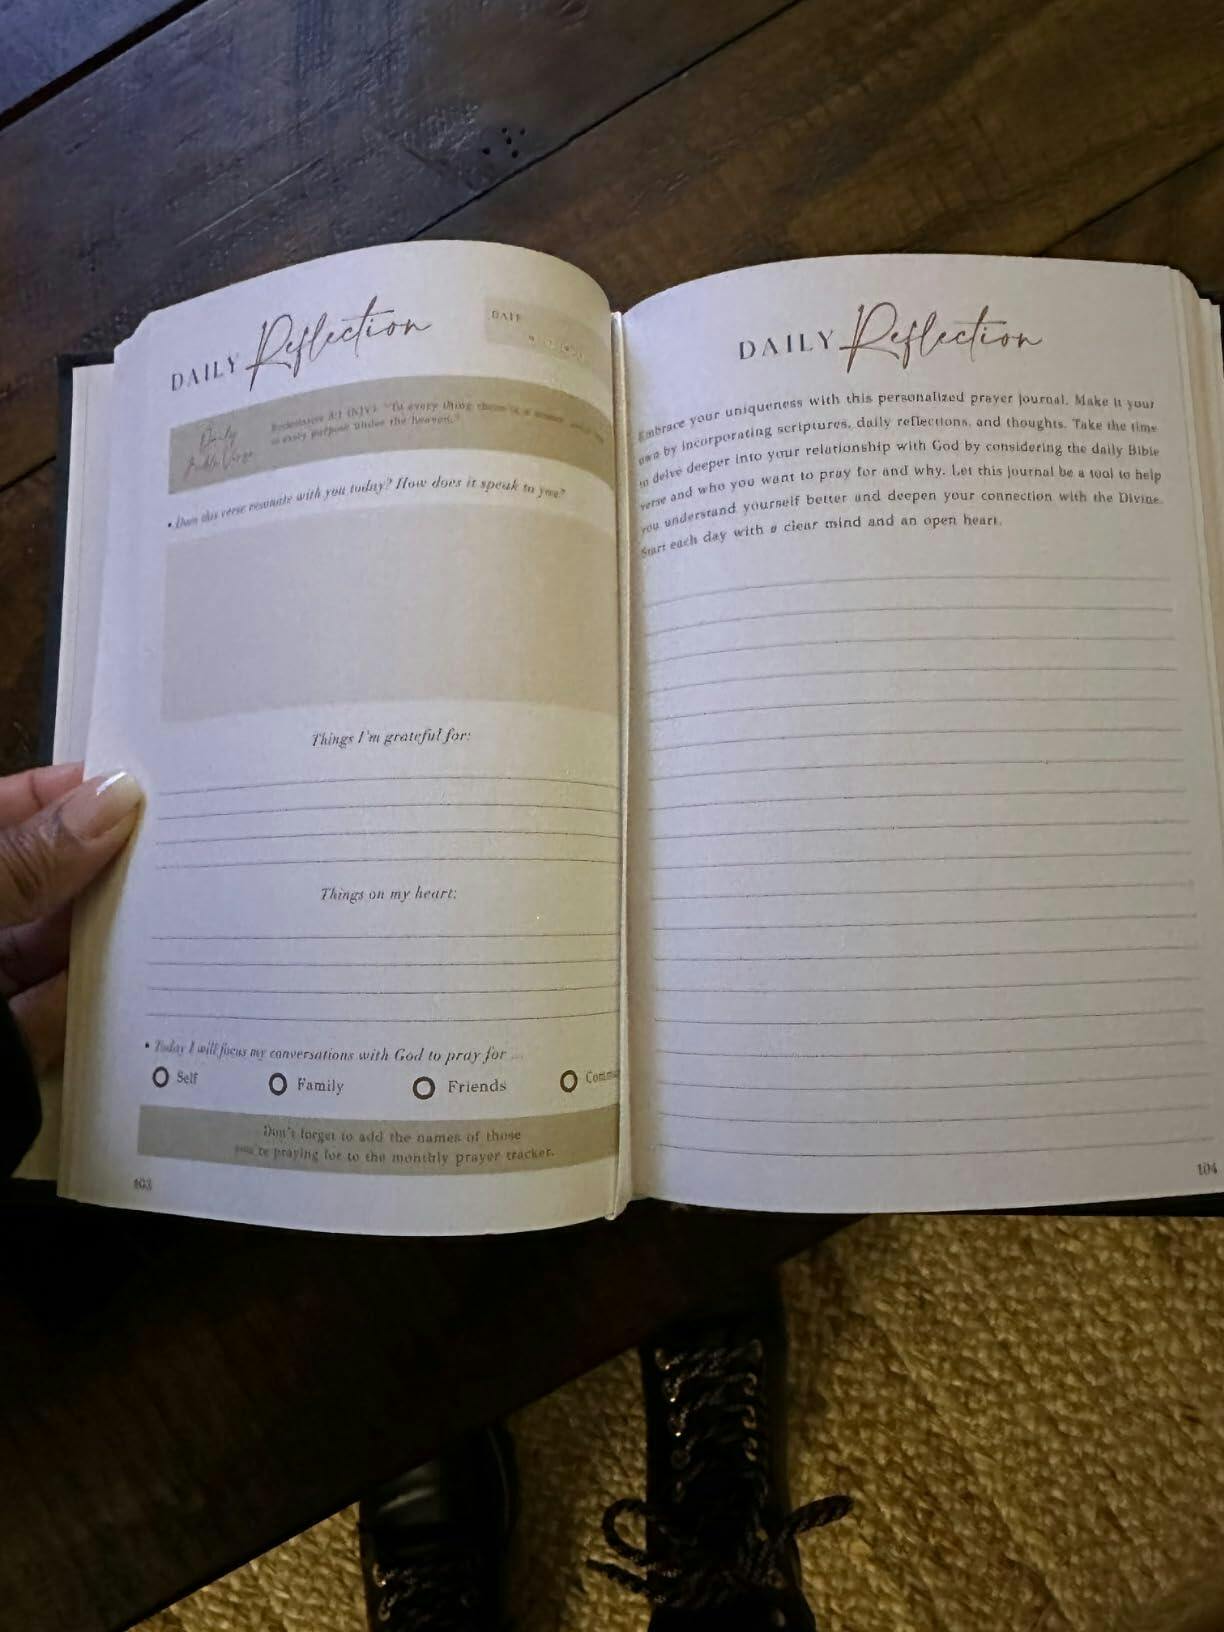 DAILY Reflection
DATE
Daily
Bible Verse
Ecclesiastes 3:1 (KJV): "To every thing there is a season, and a time
to every purpose under the heaven."
• Does this verse resonate with you today? How does it speak to you?
Things I'm grateful for:
Things on my heart:
• Today I will focus my conversations with God to pray for ...
Self Family Friends
Don't forget to add the names of those
you're praying for to the monthly prayer tracker.
103
DAILY Reflection
Embrace your uniqueness with this personalized prayer journal. Make it your
own by incorporating scriptures, daily reflections, and thoughts. Take the time
to delve deeper into your relationship with God by considering the daily Bible
verse and who you want to pray for and why. Let this journal be a tool to help
you understand yourself better and deepen your connection with the Divine.
Start each day with a clear mind and an open heart.
104